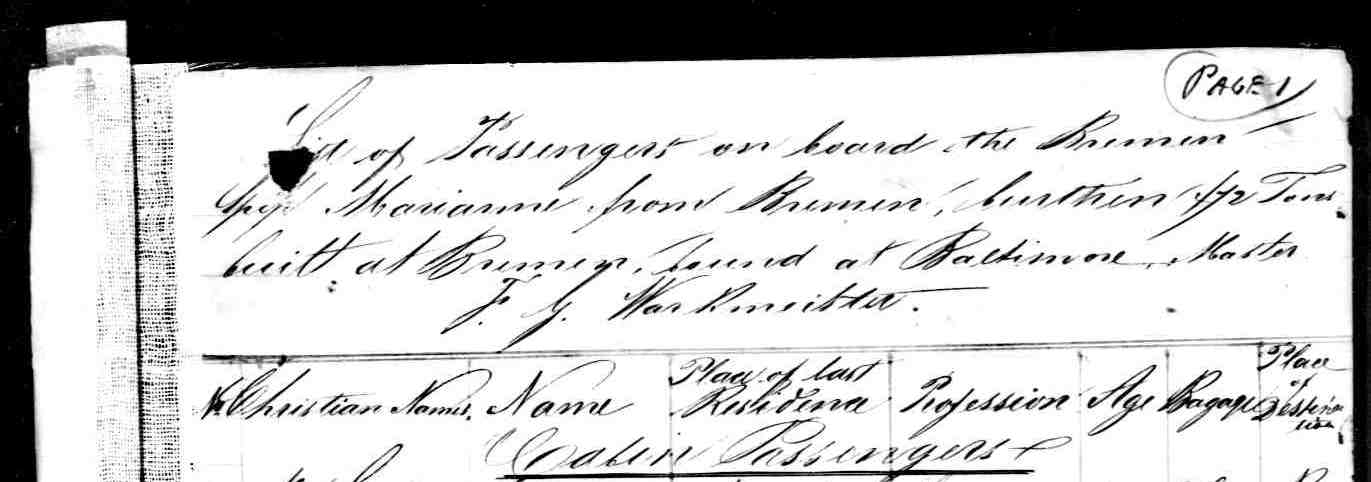 PAGE 1
List of Passengers on board the Bremen
Marianne from Bremen, burthen Tons
built at Bremen, bound at Baltimore, Master
F. G. Warkmeister.
Christian Names. Name Place of last Residence Profession Age Bagage Place of Destination
Cabin Passengers